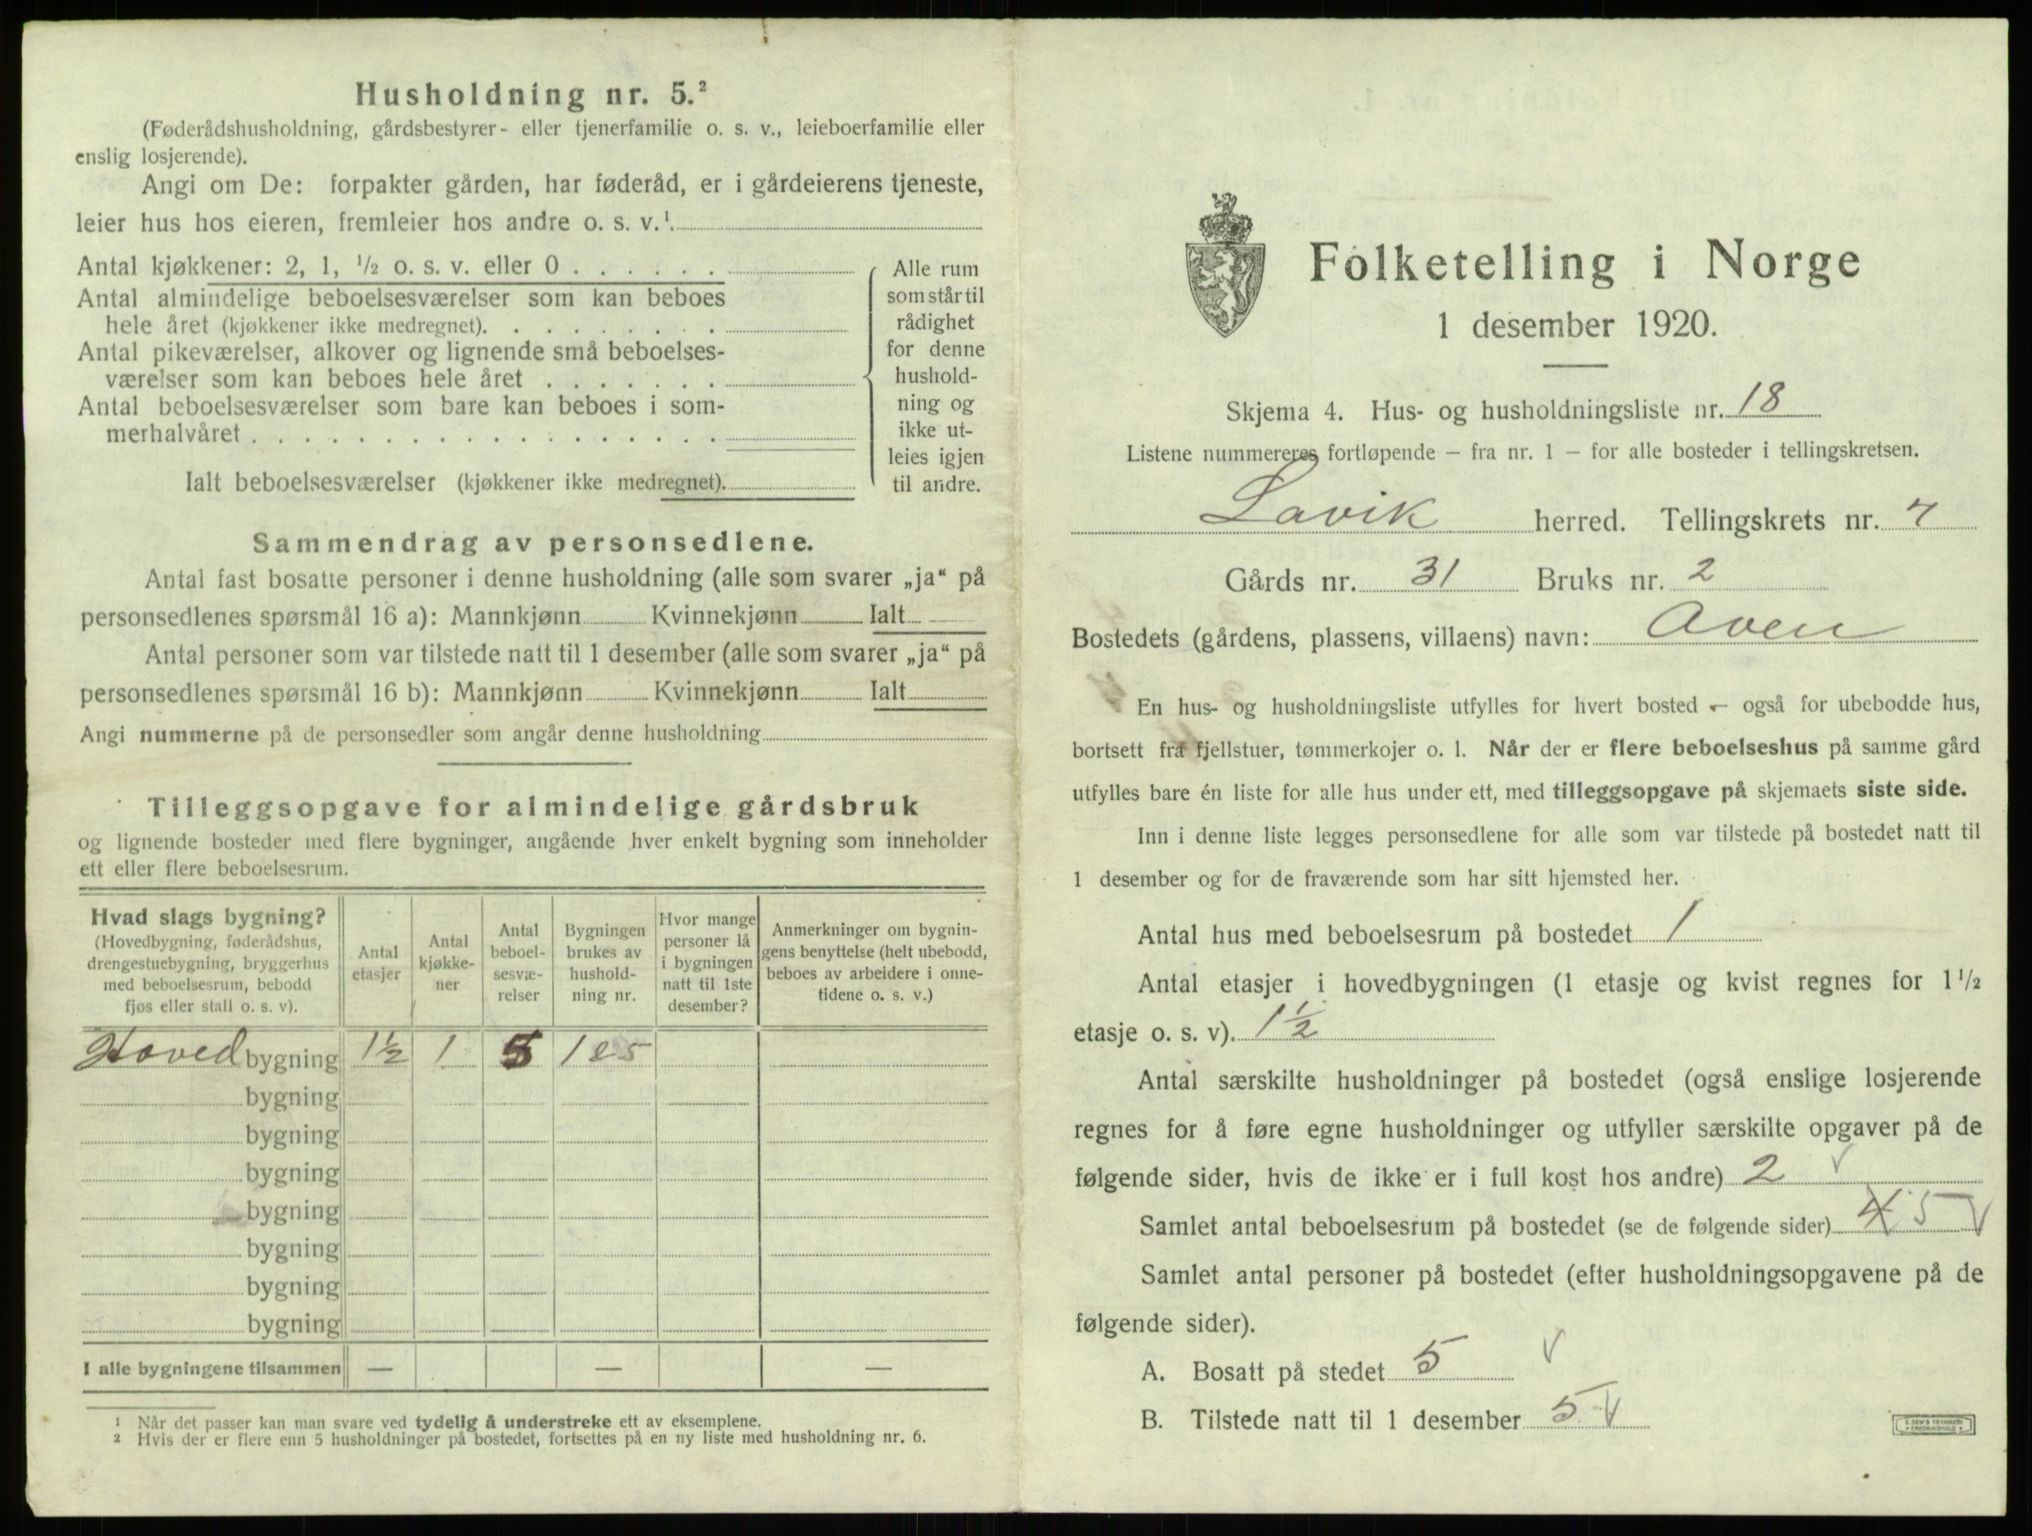 Husholdning nr. 5.²
(Føderådshusholdning, gårdsbestyrer- eller tjenerfamilie o. s. v., leieboerfamilie eller
enslig losjerende).
Angi om De: forpakter gården, har føderåd, er i gårdeierens tjeneste,
leier hus hos eieren, fremleier hos andre o. s. v.¹
Antal kjøkkener: 2, 1, ½ o. s. v. eller 0 . . . . . .
Antal almindelige beboelsesværelser som kan beboes
hele året (kjøkkener ikke medregnet). . . . . . . . .
Antal pikeværelser, alkover og lignende små beboelses-
værelser som kan beboes hele året . . . . . . .
Antal beboelsesværelser som bare kan beboes i som-
merhalvåret . . . . . . . . . . . . . . . . . .
Alle rum
som står til
rådighet
for denne
hushold-
ning og
ikke ut-
leies igjen
til andre.
Ialt beboelsesværelser (kjøkkener ikke medregnet).
Sammendrag av personsedlene.
Antal fast bosatte personer i denne husholdning (alle som svarer „ja“ på
personsedlenes spørsmål 16 a): Mannkjønn Kvinnekjønn Ialt
Antal personer som var tilstede natt til 1 desember (alle som svarer „ja“ på
personsedlenes spørsmål 16 b): Mannkjønn Kvinnekjønn Ialt
Angi nummerne på de personsedler som angår denne husholdning
Tilleggsopgave for almindelige gårdsbruk
og lignende bosteder med flere bygninger, angående hver enkelt bygning som inneholder
ett eller flere beboelsesrum.
Hvad slags bygning?
(Hovedbygning, føderådshus,
drengestuebygning, bryggerhus
med beboelsesrum, bebodd
fjøs eller stall o. s. v).
Antal
etasjer
Antal
kjøkke-
ner
Antal
beboel-
sesvæ-
relser
Bygningen
brukes av
hushold-
ning nr.
Hvor mange
personer lå
i bygningen
natt til 1ste
desember?
Anmerkninger om bygnin-
gens benyttelse (helt ubebodd,
beboes av arbeidere i onne-
tidene o. s. v.)
Hoved bygning 1½ 1 5
bygning
bygning
bygning
bygning
bygning
bygning
bygning
I alle bygningene tilsammen — — —
¹ Når det passer kan man svare ved tydelig å understreke ett av eksemplene.
² Hvis der er flere enn 5 husholdninger på bostedet, fortsettes på en ny liste med husholdning nr. 6.
Folketelling i Norge
1 desember 1920.
Skjema 4. Hus- og husholdningsliste nr. 18
Listene nummereres fortløpende – fra nr. 1 – for alle bosteder i tellingskretsen.
Lavik herred. Tellingskrets nr. 7
Gårds nr. 31 Bruks nr. 2
Bostedets (gårdens, plassens, villaens) navn: Aven
En hus- og husholdningsliste utfylles for hvert bosted – også for ubebodde hus,
bortsett fra fjellstuer, tømmerkojer o. l. Når der er flere beboelseshus på samme gård
utfylles bare én liste for alle hus under ett, med tilleggsopgave på skjemaets siste side.
Inn i denne liste legges personsedlene for alle som var tilstede på bostedet natt til
1 desember og for de fraværende som har sitt hjemsted her.
Antal hus med beboelsesrum på bostedet 1
Antal etasjer i hovedbygningen (1 etasje og kvist regnes for 1½
etasje o. s. v). 1½
Antal særskilte husholdninger på bostedet (også enslige losjerende
regnes for å føre egne husholdninger og utfyller særskilte opgaver på de
følgende sider, hvis de ikke er i full kost hos andre) 2 v
Samlet antal beboelsesrum på bostedet (se de følgende sider) 4 5 v
Samlet antal personer på bostedet (efter husholdningsopgavene på de
følgende sider).
A. Bosatt på stedet 5 v
B. Tilstede natt til 1 desember 5 v